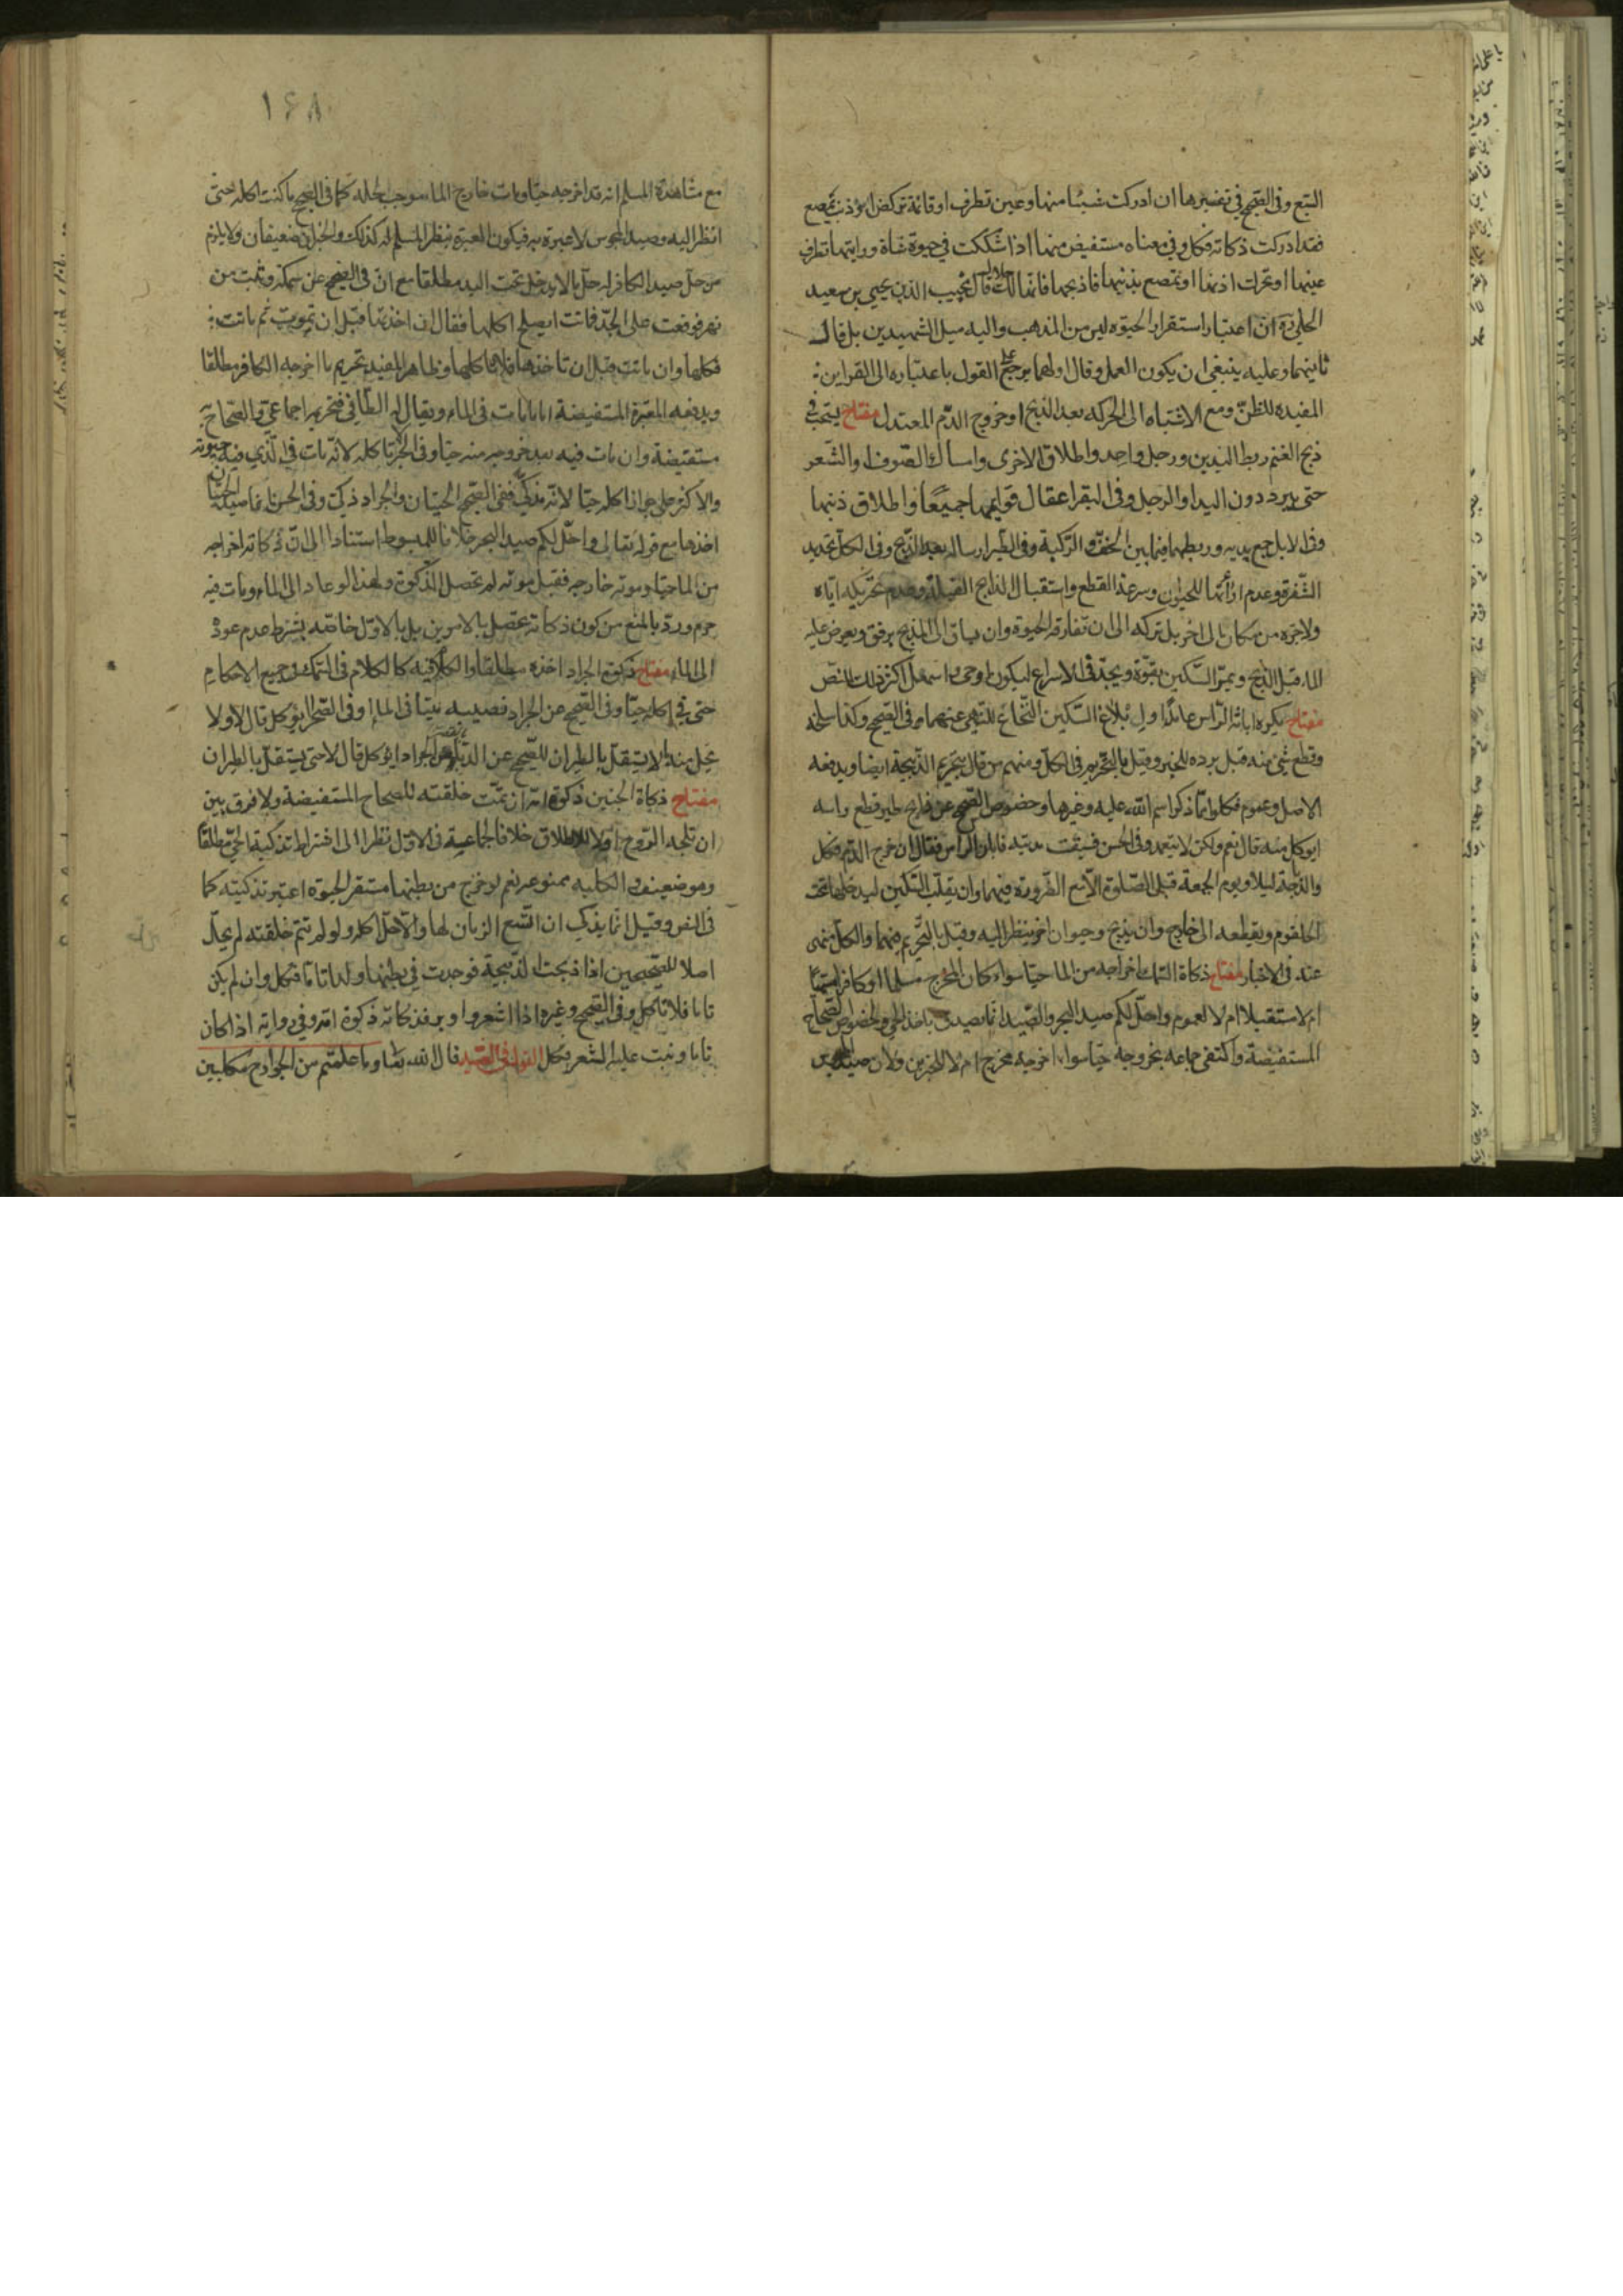 السبع وفى الصحيح فى تفسيرها ان ادركت شيئا منها وعين تطرف او قائمة تركض او ذنب يمصع
فقد ادركت ذكاته فكل وفى معناه مستفيض منها اذا شككت فى حيوة شاة ورايتها تطرف
عينها او تحرك اذنها او تمصع بذنبها فاذبحها فانها لك حلال قال نجيب الدين يحيى بن سعيد
الحلى ان اعتبار استقرار الحيوة ليس من المذهب واليه ميل الشهيدين بل قال
ثانيهما وعليه ينبغى ان يكون العمل وقال اولهما يرجح على القول باعتباره الى القراين
المفيده للظن ومع الاشتباه الى الحركه بعد الذبح او خروج الدم المعتدل مفتاح يستحب فى
ذبح الغنم ربط اليدين ورجل واحد واطلاق الاخرى وامساك الصوف او الشعر
حتى يبرد دون اليد او الرجل وفى البقر اعقال قوايمها جميعا واطلاق ذنبها
وفى الابل جمع يديه وربطهما فيما بين الخف والركبة وفى الطير ارساله بعد الذبح وفى الكل تحديد
الشفرة وعدم اراتها للحيوان وسرعة القطع واستقبال الذابح القبلة وعدم تحريكه اياه
ولا جره من مكان الى اخر بل تركه الى ان تفارقه الحيوة وان يساق الى المذبح برفق ويعرض عليه
الماء قبل الذبح ويمر السكين بقوة ويجد فى الاسراع ليكون اوحى واسهل اكثر ذلك للنص
مفتاح يكره ابانة الراس عامدا وابلاغ السكين النخاع للنهى عنهما فى الصحيح وكذا سلخه
وقطع شئ منه قبل برده للخبر وقيل بالتحريم فى الكل ومنهم من قال بتحريم الذبيحة ايضا ويدفعه
الاصل وعموم فكلوا مما ذكر اسم الله عليه وغيرها وخصوص الصحيح عن ذابح طير قطع راسه
ايوكل منه قال نعم ولكن لا يتعمد وفى الحسن فسبقت مديته فابان الراس فقال ان خرج الدم فكل
والذباحة ليلا ويوم الجمعة قبل الصلوة الا مع الضرورة فيهما وان يقلب السكين ليدخلها تحت
الحلقوم ويقطعه الى خارج وان يذبح وحيوان اخر ينظر اليه وقيل بالتحريم فيهما والكل منهى
عنه فى الاخبار مفتاح ذكاة السمك اخراجه من الماء حيا سواء كان المخرج مسلما او كافرا سمى
ام لا استقبل ام لا لعموم واحل لكم صيد البحر والصيد انما يصدق باخذ الحى ولخصوص الصحاح
المستفيضة واكتفى جماعه بخروجه حيا سواء اخرجه مخرج ام لا للخبرين ولان صيد المجوس
١٤٨
مع مشاهدة المسلم انه قد اخرجه حيا ومات خارج الماء موجب لحله كما فى الصحيح ما كنت لاكله حتى
انظر اليه وصيد المجوس لا عبرة به فيكون العبرة بنظر المسلم له كذلك والخبران ضعيفان ولا يلزم
من حل صيد الكافر له حل ما لا يدخل تحت اليد مطلقا مع ان فى الصحيح عن سمكة وثبت من
نهر فوقعت على الجد فماتت ايصلح اكلها فقال ان اخذتها قبل ان تموت ثم ماتت
فكلها وان ماتت قبل ان تاخذها فلا تاكلها وظاهر المفيد تحريم ما اخرجه الكافر مطلقا
ويدفعه المعتبرة المستفيضة اما ما مات فى الماء ويقال له الطافى فتحريمه اجماعى والصحاح به
مستفيضة وان مات فيه بعد خروجه منه حيا وفى الخبر لا تاكله لانه مات فى الذى فيه حيوته
والاكثر على جواز اكله حيا لانه مذكى ففى الصحيح الحيتان والجراد ذكى وفى الحسن انما صيد الحيتان
اخذها مع قوله تعالى واحل لكم صيد البحر خلافا للمبسوط استنادا الى ان ذكاته اخراجه
من الماء حيا وموته خارجه فقبل موته لم تحصل الذكوة ولهذا لو عاد الى الماء ومات فيه
حرم ورد بالمنع من كون ذكاته تحصل بالامرين بل بالاول خاصه بشرط عدم عوده
الى الماء مفتاح ذكوة الجراد اخذه مطلقا والكلام فيه كالكلام فى السمك فى جميع الاحكام
حتى فى اكله حيا وفى الصحيح عن الجراد نصيبه ميتا فى الماء او فى الصحرا ايؤكل قال لا ولا
يحل منه ما لا يستقل بالطيران للصحيح عن الدبا من الجراد ايؤكل قال لا حتى يستقل بالطيران
مفتاح ذكاة الجنين ذكوة امه ان تمت خلقته للصحاح المستفيضة ولا فرق بين
ان تلجه الروح او لا للاطلاق خلافا لجماعة فى الاول نظرا الى اشتراط تذكية الحى مطلقا
وهو ضعيف والكليه ممنوعه نعم لو خرج من بطنها مستقر الحيوة اعتبر تذكيته كما
فى النص وقيل انما يذكى ان اتسع الزمان لها والا حل اكله ولو لم تتم خلقته لم يحل
اصلا للصحيحين اذا ذبحت الذبيحة فوجدت فى بطنها ولدا تاما فكل وان لم يكن
تاما فلا تاكل وفى الصحيح وغيره اذا اشعر واوبر فذكاته ذكوة امه وفى رواية اذا كان
تاما ونبت عليه الشعر فكل القول فى الصيد قال الله تعالى وما علمتم من الجوارح مكلبين